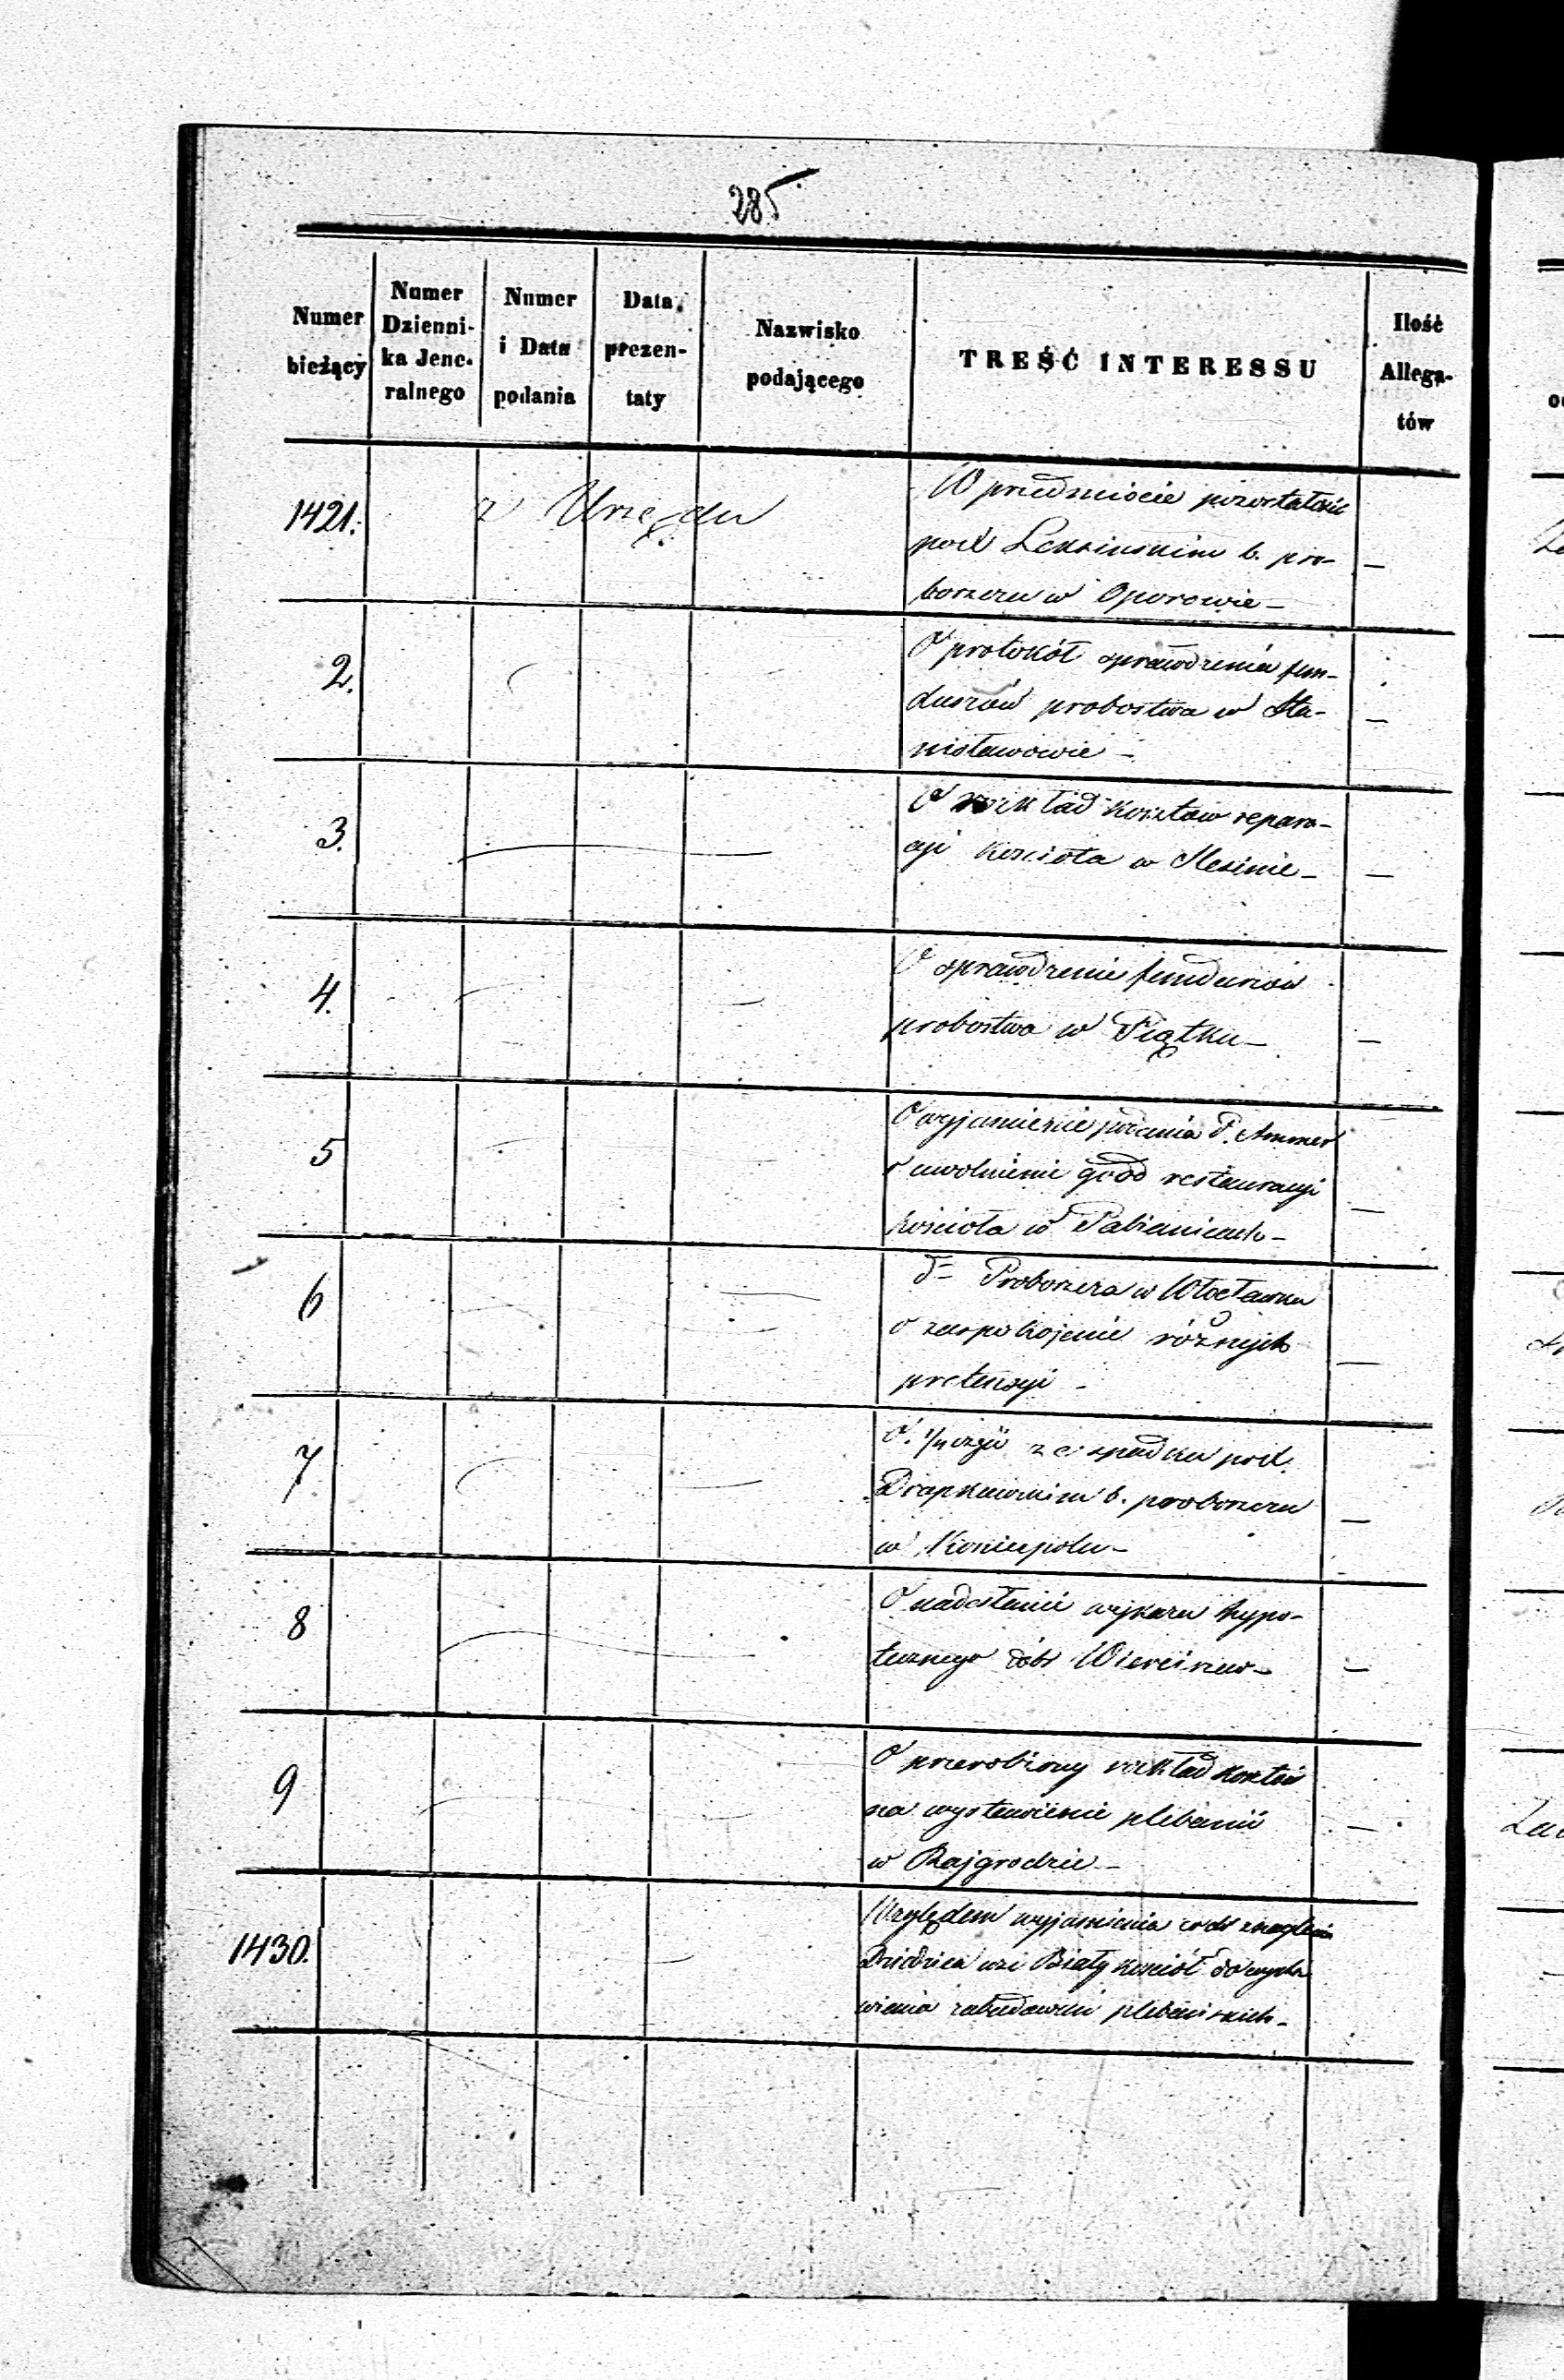 285
Numer bieżący
Numer Dzienni-ka Jene-ralnego
Numer i Data podania
Data prezen-taty
Nazwisko podającego
TREŚĆ INTERESSU
Ilość Allega-tów
1421. z Urzędu W przedmiocie pozostałości
po Xdz Leksinskim b. pro-
boszczu w Oporowie –
2. O protokół sprawdzenia fun-
duszów probostwa w Sta-
nisławowie –
3. O rozkład kosztów repara-
cyi kościoła w Slesinie –
4. O sprawdzenie funduszów
probostwa w Piątku –
5 O wyjaśnienie podania P. Ammer
o uwolnienie go od restauracyi
kościoła w Pabianicach –
6 do Proboszcza w Włocławku
o zaspokojenie różnych
pretensyi –
7 O 1/4 części ze spadku po Xd.
b. proboszczu
w Koniecpolu –
8 O nadesłanie wykazu hypo-
tecznego dóbr
9 O przerobiony rozkład kosztów
na wystawienie plebanii
w Rajgrodzie –
1430. Względem wyjaśnienia co do znaglenia
Dziedzica wsi Biały kościół do wysta
wienia zabudowań plebańskich –